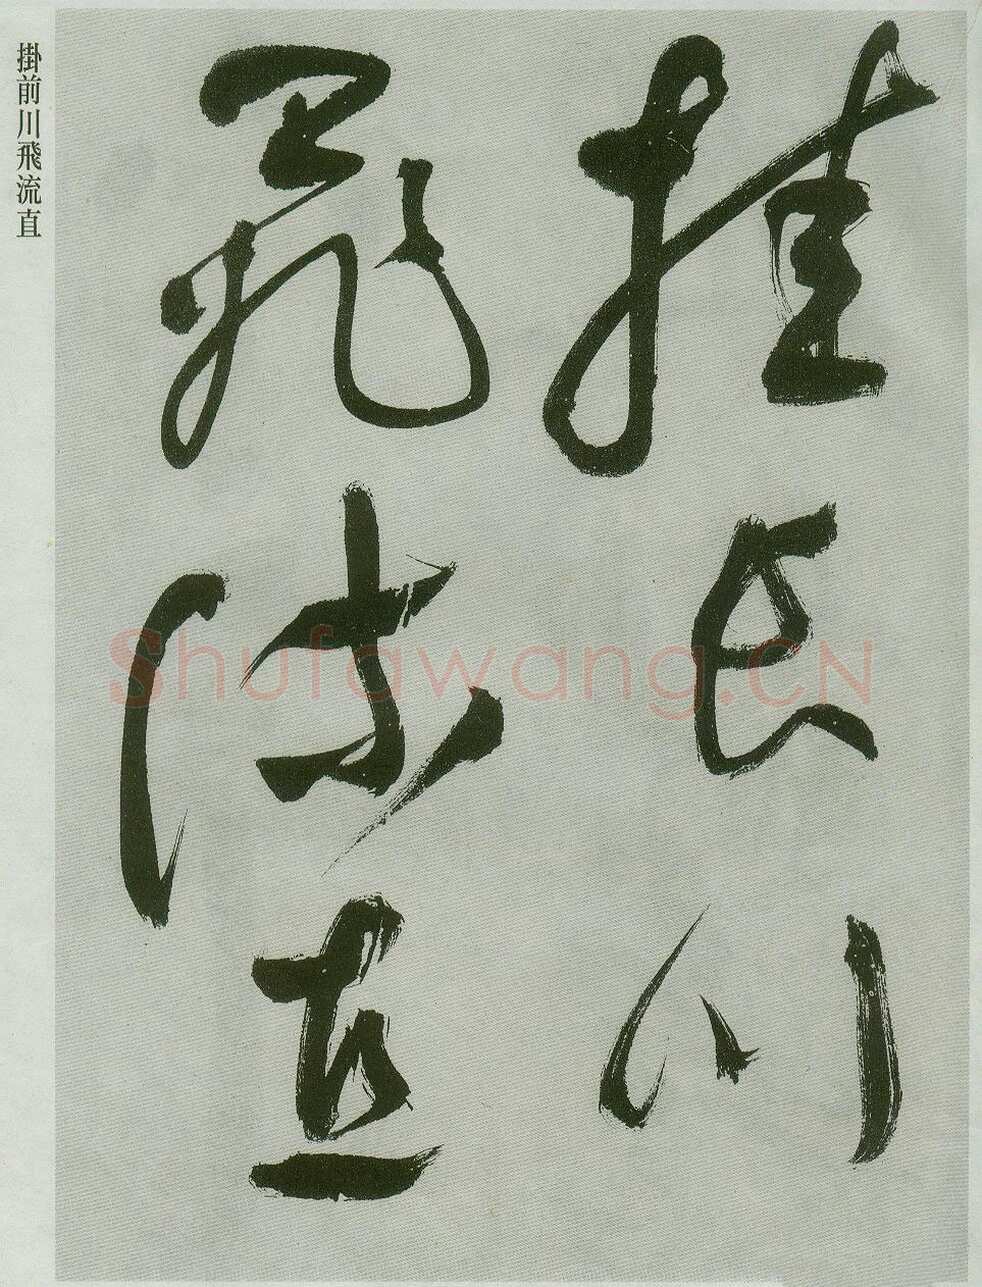 挂長川
飛流直
掛前川飛流直
Shufawang.CN